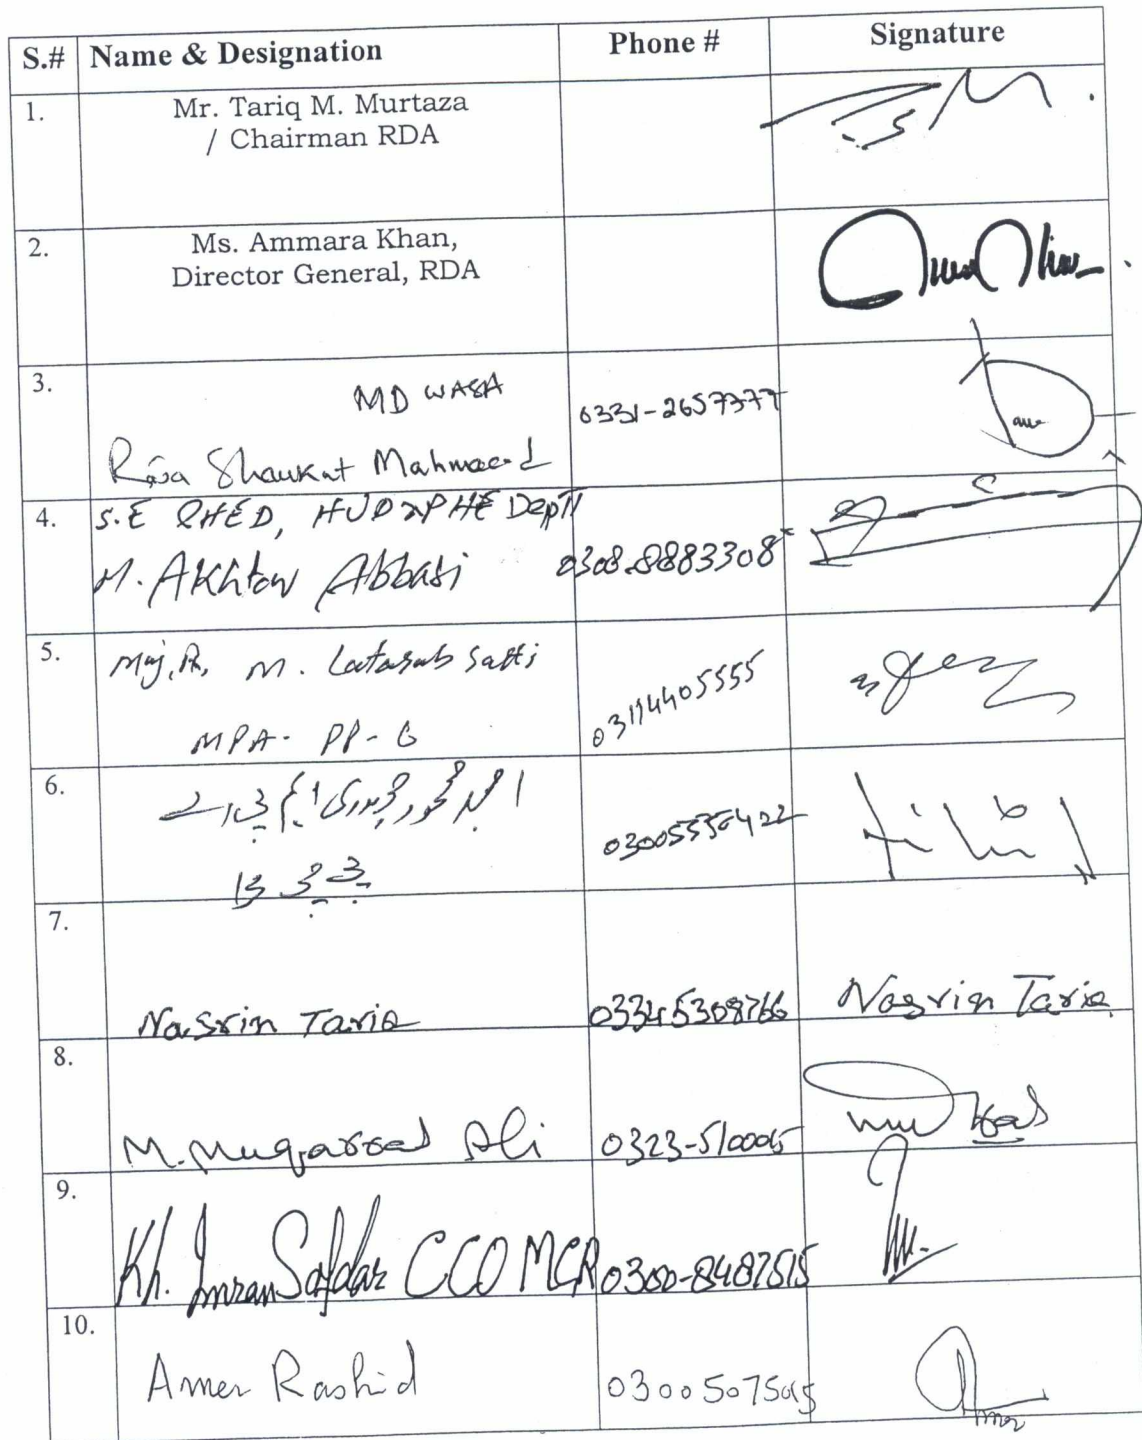 S.# Name & Designation Phone # Signature
1. Mr. Tariq M. Murtaza
/ Chairman RDA
2. Ms. Ammara Khan,
Director General, RDA
3. MD WASA
0331-2657777
Raja Shaukat Mahmood
4. S.E PHED, HUD & PHE Deptt
M. Akhtar Abbasi 0308-8883308
5. Maj, R, M. Latasab Satti
03114405555
MPA- PP-6
6.
7.
Nasrin Tariq 03345308766 Nasrin Tariq
8.
M. Muqarrab Ali 0323-510005
9.
Kh. Imran Safdar CCO MCR 0300-8487515
10.
Amer Rashid 03005075015